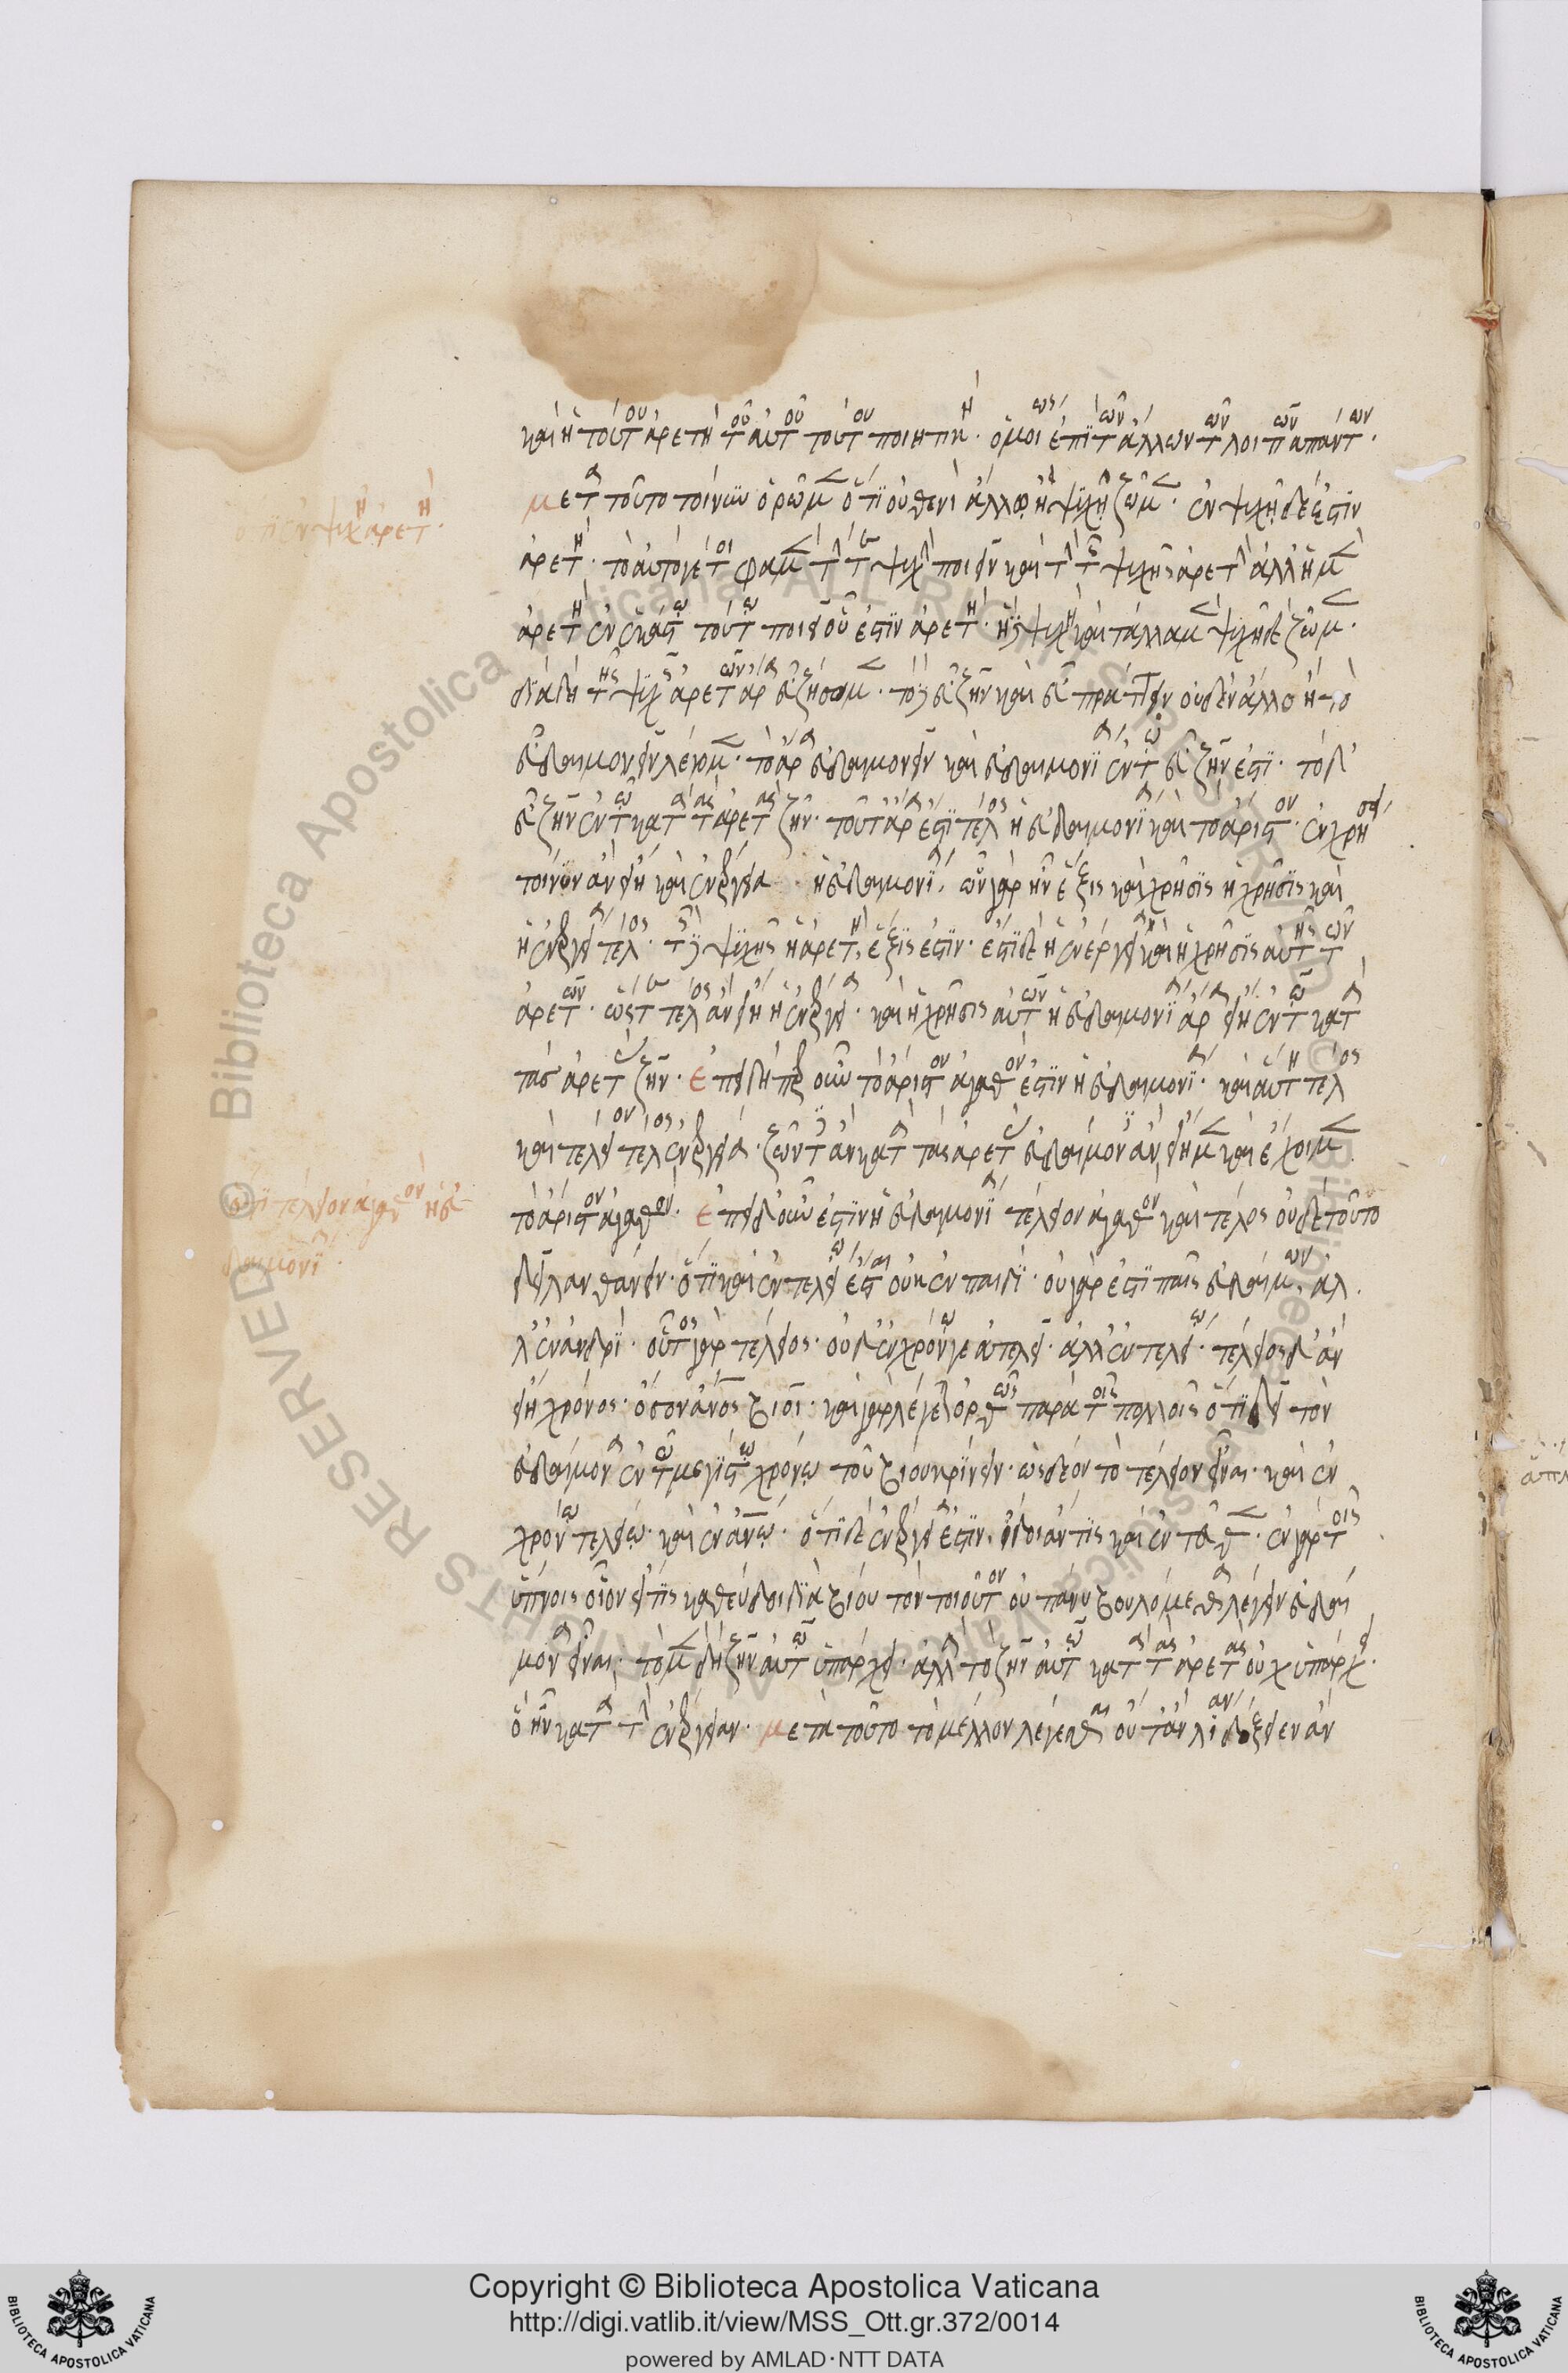 καὶ ἡ τούτου ἀρετὴ τοῦ αὐτοῦ τούτου ποιητική. ὁμοίως ἐπὶ τῶν ἄλλων τῶν λοιπῶν ἁπάντων.
μετὰ τοῦτο τοίνυν ὁρῶμεν ὅτι οὐθενὶ ἄλλῳ ἢ ψυχῇ ζῶμεν. ἐν ψυχῇ δέ ἐστιν
ὅτι ἐν ψυχῇ ἀρετή.
ἀρετή. τὸ αὐτό γέ τοί φαμεν τήν τε ψυχὴν ποιεῖν καὶ τὴν τῆς ψυχῆς ἀρετήν. ἀλλ' ἡ μὲν
ἀρετὴ ἐν ἑκάστῳ τοῦτο ποιεῖ οὗ ἐστιν ἀρετή. ἡ δὲ ψυχὴ καὶ τἆλλα μὲν ψυχῇ δὲ ζῶμεν.
διὰ δὴ τὴν τῆς ψυχῆς ἀρετὴν ἄρα εὖ ζήσομεν. τὸ δέ γ' εὖ ζῆν καὶ εὖ πράττειν οὐδὲν ἄλλο ἢ τὸ
εὐδαιμονεῖν λέγομεν. τὸ ἄρα εὐδαιμονεῖν καὶ ἡ εὐδαιμονία ἐν τῷ εὖ ζῆν ἐστι. τὸ δ'
εὖ ζῆν ἐν τῷ κατὰ τὰς ἀρετὰς ζῆν. τοῦτ' ἄρα ἐστὶ τέλος ἡ εὐδαιμονία καὶ τὸ ἄριστον. ἐν χρήσει
τοίνυν ἂν εἴη καὶ ἐνεργείᾳ ἡ εὐδαιμονία. ὧν γὰρ ἦν ἕξις καὶ χρῆσις ἡ χρῆσις καὶ
ἡ ἐνέργεια τέλος. τῆς δὲ ψυχῆς ἡ ἀρετὴ ἕξις ἐστίν. ἔστι δὲ ἡ ἐνέργεια καὶ ἡ χρῆσις αὐτῆς τῶν
ἀρετῶν. ὥστε τέλος ἂν εἴη ἡ ἐνέργεια καὶ ἡ χρῆσις αὐτῶν ἡ εὐδαιμονία ἄρα εἴη ἐν τῷ κατὰ
τὰς ἀρετὰς ζῆν. ἐπειδήπερ οὖν τὸ ἄριστον ἀγαθόν ἐστιν ἡ εὐδαιμονία. καὶ αὕτη τέλος
καὶ τέλειον τέλος ἐνεργείᾳ. ζῶντες ἂν κατὰ τὰς ἀρετὰς εὐδαίμονες ἂν εἴημεν καὶ ἔχοιμεν
τὸ ἄριστον ἀγαθόν. ἐπειδ' οὖν ἐστὶν ἡ εὐδαιμονία τέλειον ἀγαθὸν καὶ τέλος οὐδὲ τοῦτο
ὅτι τέλειον ἀγαθὸν ἡ εὐ
δαιμονία.
δεῖ λανθάνειν. ὅτι καὶ ἐν τελείῳ ἔσται οὐκ ἐν παιδί. οὐ γάρ ἐστι παῖς εὐδαίμων. ἀλ
λ' ἐν ἀνδρί. οὗτος γὰρ τέλειος. οὐδ' ἐν χρόνῳ γε ἀτελεῖ. ἀλλ' ἐν τελείῳ. τέλειος δ' ἂν
εἴη χρόνος. ὅσον ἄνθρωπος βιοῖ. καὶ γὰρ λέγεται ὀρθῶς παρὰ τοῖς πολλοῖς ὅτι δεῖ τὸν
εὐδαίμονα ἐν τῷ μεγίστῳ χρόνῳ τοῦ βίου κρίνειν. ὡς δέον τὸ τέλειον εἶναι. καὶ ἐν
χρόνῳ τελείῳ. καὶ ἐν ἀνθρώπῳ. ὅτι δὲ ἐνέργειά ἐστιν. ἴδοι ἄν τις καὶ ἐντεῦθεν. ἐν γὰρ τοῖς
ὕπνοις οἷον εἴ τις καθεύδοι διὰ βίου τὸν τοιοῦτον οὐ πάνυ βουλόμεθα λέγειν εὐδαί
μονα εἶναι. τὸ μὲν δὴ ζῆν αὐτῷ ὑπάρχει. ἀλλὰ τὸ ζῆν αὐτῷ κατὰ τὰς ἀρετὰς οὐχ ὑπάρχει.
ὃ ἦν κατὰ τὴν ἐνέργειαν. μετὰ τοῦτο τὸ μέλλον λέγεσθαι οὔτ' ἂν λίαν δόξειεν ἂν
Copyright © Biblioteca Apostolica Vaticana
http://digi.vatlib.it/view/MSS_Ott.gr.372/0014
powered by AMLAD·NTT DATA
BIBLIOTECA APOSTOLICA VATICANA
BIBLIOTECA APOSTOLICA VATICANA